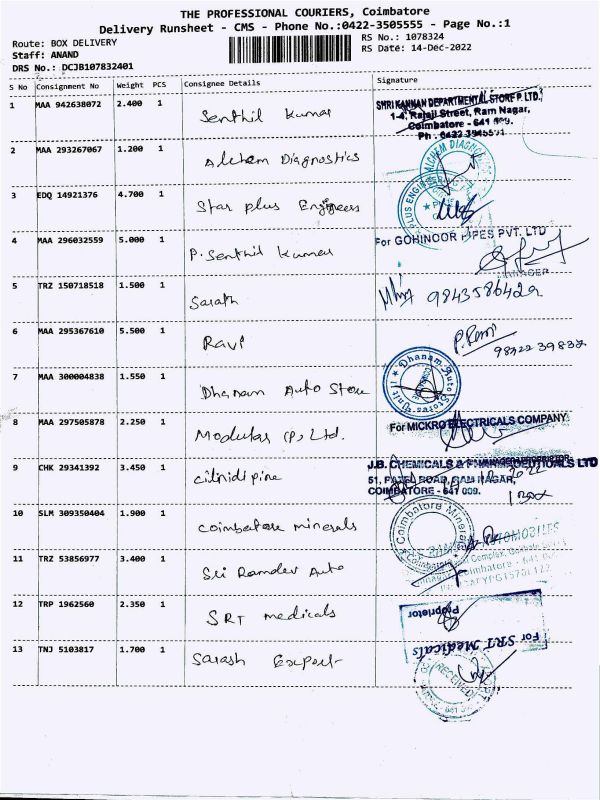 THE PROFESSIONAL COURIERS, Coimbatore
Delivery Runsheet - CMS - Phone No.:0422-3505555 - Page No.:1
Route: BOX DELIVERY RS No.: 1078324
Staff: ANAND RS Date: 14-Dec-2022
DRS No.: DCJB107832401
S No Consignment No Weight PCS Consignee Details Signature
1 MAA 942638072 2.400 1 Senthil Kumar
SHRI KANNAN DEPARTMENTAL STORE P. LTD.,
1-4, Rajaji Street, Ram Nagar,
Coimbatore - 641 009.
2 MAA 293267067 1.200 1 Alchem Diagnostics
ALCHEM
3 EDQ 14921376 4.700 1 Star plus Engineers
PLUS ENGINEER
4 MAA 296032559 5.000 1 P. Senthil Kumar
For GOHINOOR PIPES PVT. LTD
MANAGER
5 TRZ 150718518 1.500 1 Sarath
6 MAA 295367610 5.500 1 Ravi
P. Ravi
7 MAA 300004838 1.550 1 Dhanam Auto Store
Dhanam Auto Stores Unit I
8 MAA 297505878 2.250 1 Modular (P) Ltd.
For MICKRO ELECTRICALS COMPANY
9 CHK 29341392 3.450 1 cilnidipine
J.B. CHEMICALS & PHARMACEUTICALS LTD
51, PATEL ROAD, RAM NAGAR,
COIMBATORE - 641 009.
1 Box
10 SLM 309350404 1.900 1 Coimbatore minerals
Coimbatore Minerals
AUTOMOBILES
11 TRZ 53856977 3.400 1 Sri Ramdev Auto
12 TRP 1962560 2.350 1 SRT medicals
For SRT Medicals
Proprietor
13 TNJ 5103817 1.700 1 Sarash Export
RECEIVED